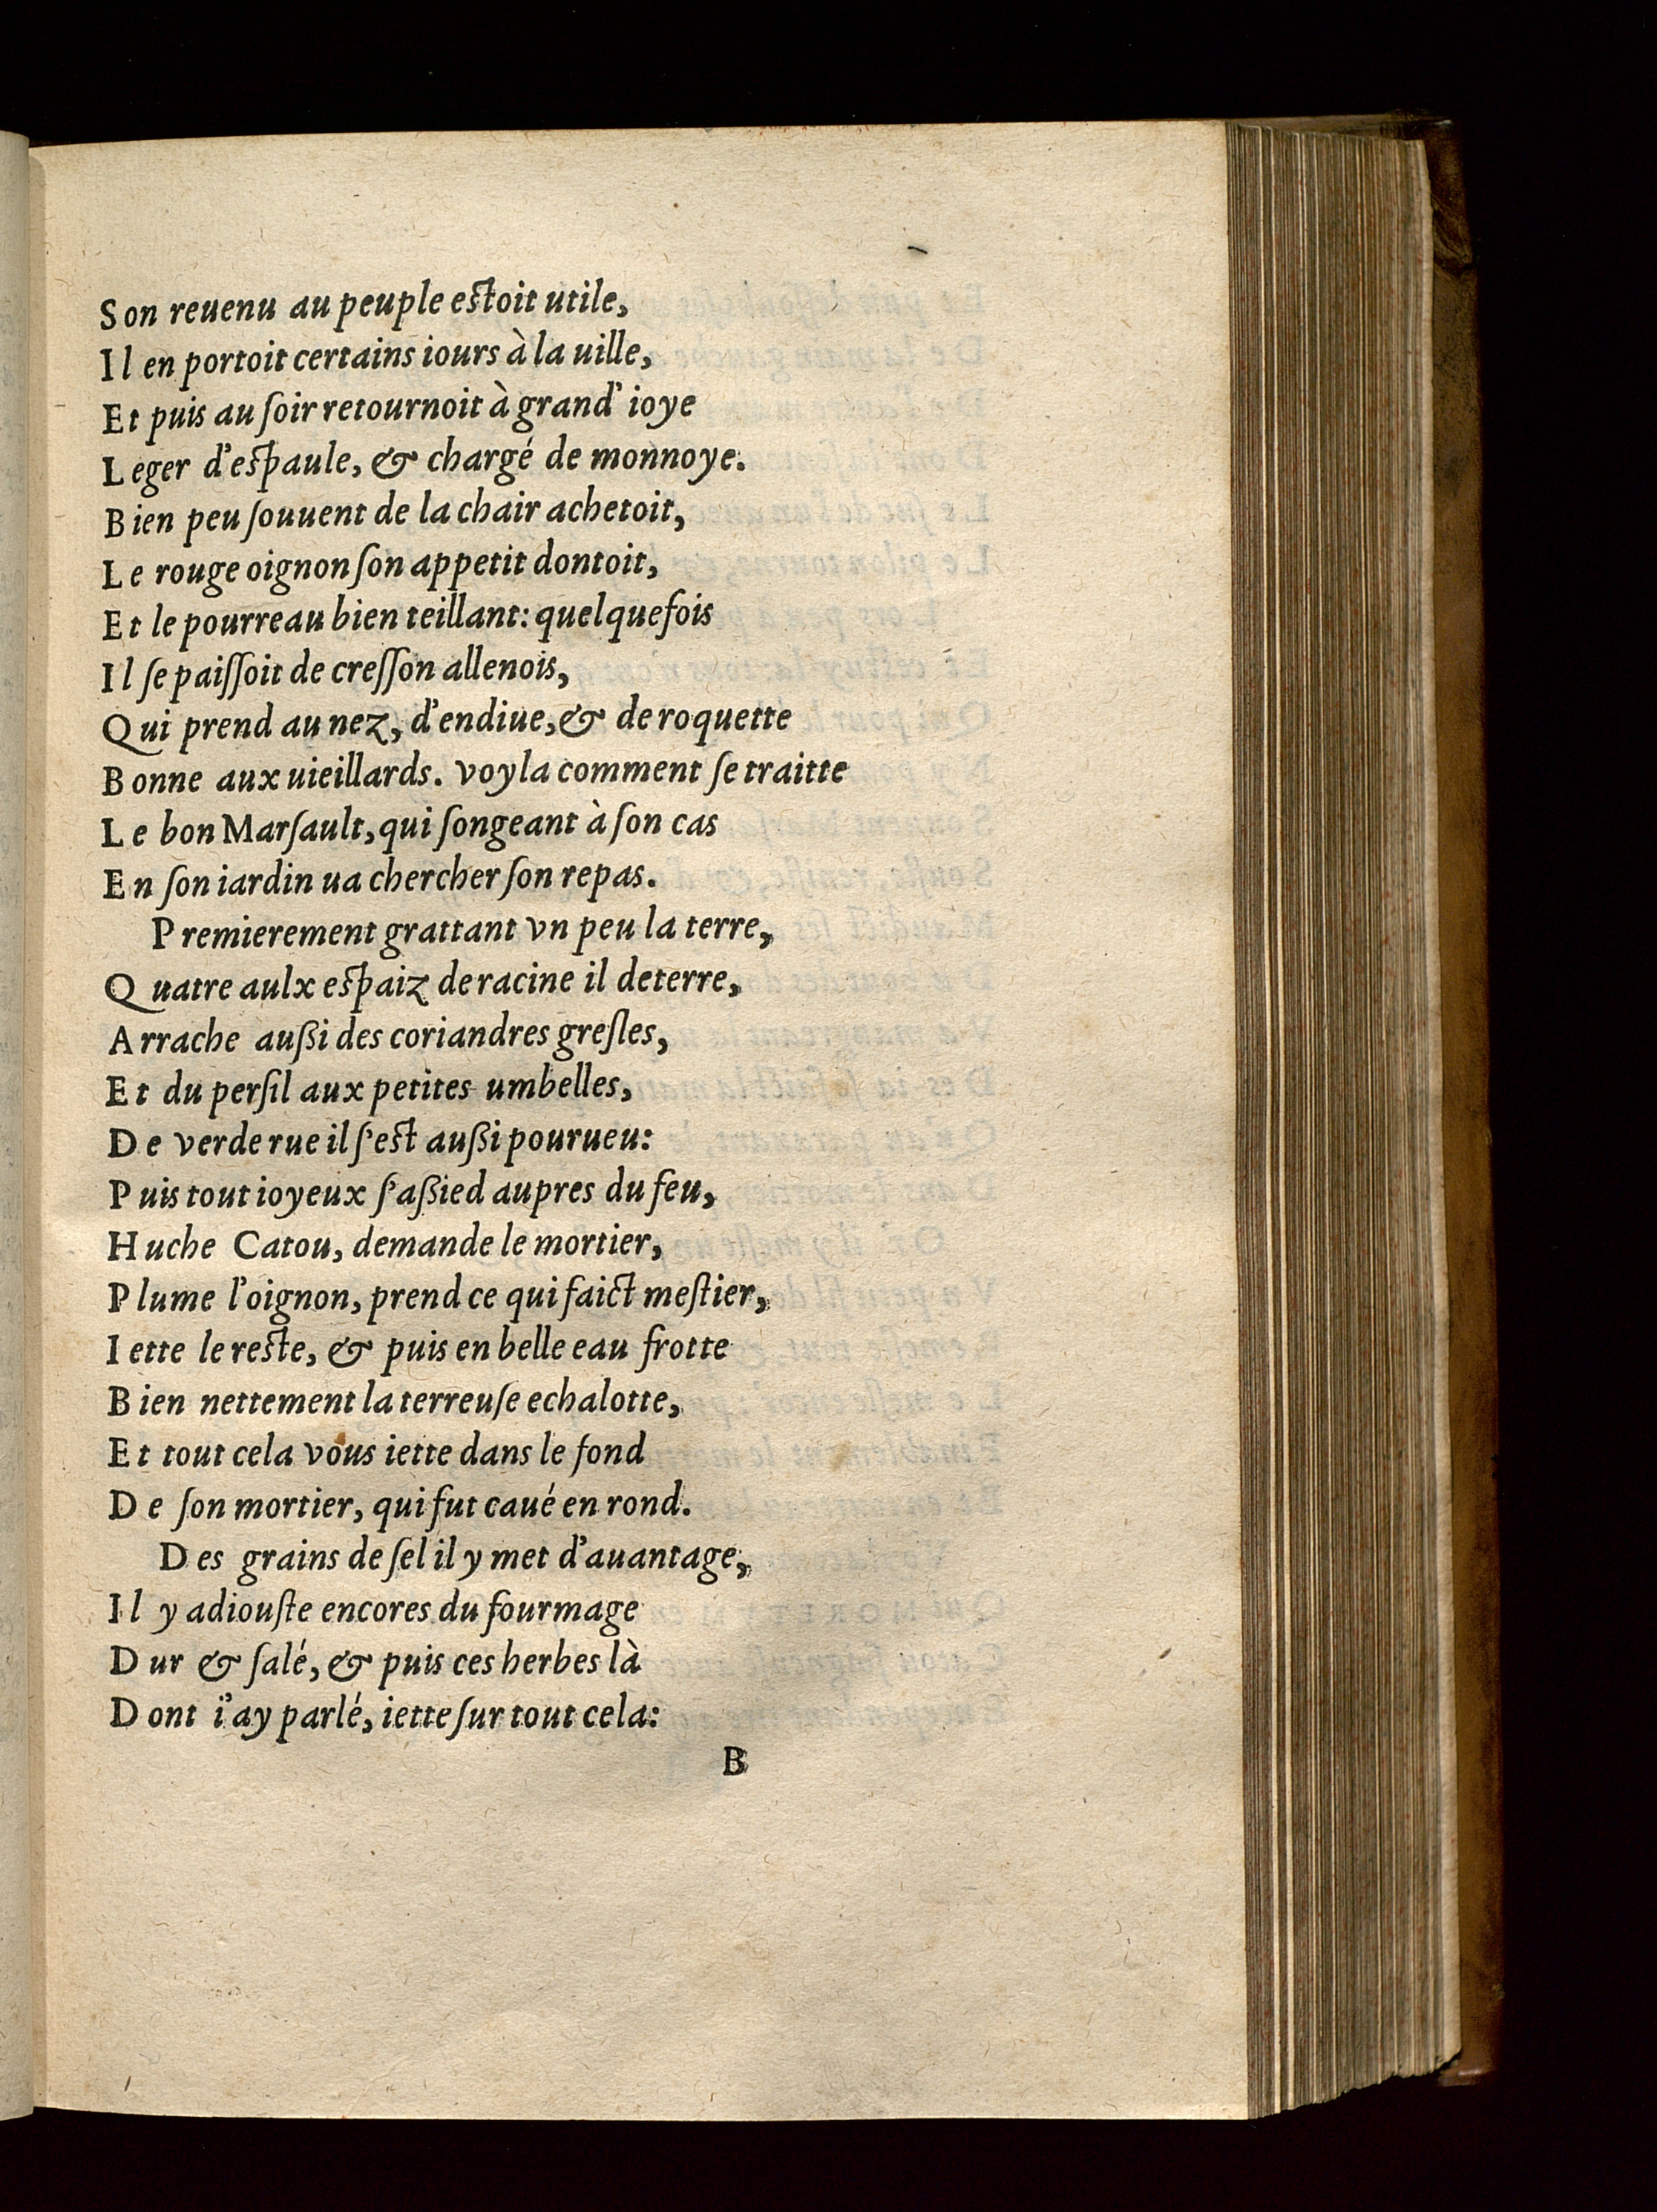 Son reuenu au peuple estoit utile,
Il en portoit certains iours à la uille,
Et puis au ſoir retournoit à grand' ioye
Leger d'eſpaule, & chargé de monnoye.
Bien peu ſouuent de la chair achetoit,
Le rouge oignon ſon appetit dontoit,
Et le pourreau bien teillant: quelquefois
Il ſe paiſſoit de creſſon allenois,
Qui prend au nez, d'endiue, & de roquette
Bonne aux uieillards. voyla comment ſe traitte
Le bon Marſault, qui ſongeant à ſon cas
En ſon iardin ua chercher ſon repas.
Premierement grattant vn peu la terre,
Quatre aulx eſpaiz de racine il deterre,
Arrache außi des coriandres greſles,
Et du perſil aux petites umbelles,
De verde rue il ſ'est außi pourueu:
Puis tout ioyeux ſ'aßied aupres du feu,
Huche Catou, demande le mortier,
Plume l'oignon, prend ce qui faict meſtier,
Iette le reste, & puis en belle eau frotte
Bien nettement la terreuſe echalotte,
Et tout cela vous iette dans le fond
De ſon mortier, qui fut caué en rond.
Des grains de ſel il y met d'auantage,
Il y adiouſte encores du fourmage
Dur & ſalé, & puis ces herbes là
Dont i'ay parlé, iette ſur tout cela:
B